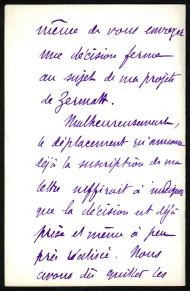 même de vous envoyer
une décision ferme
au sujet de mes projets
de Zermatt.
Malheureusement,
le déplacement qu'annonce
déjà la suscription de ma
lettre suffirait à indiquer
que la décision est déjà
prise et même à peu
près réalisée. Nous
avons dû quitter les